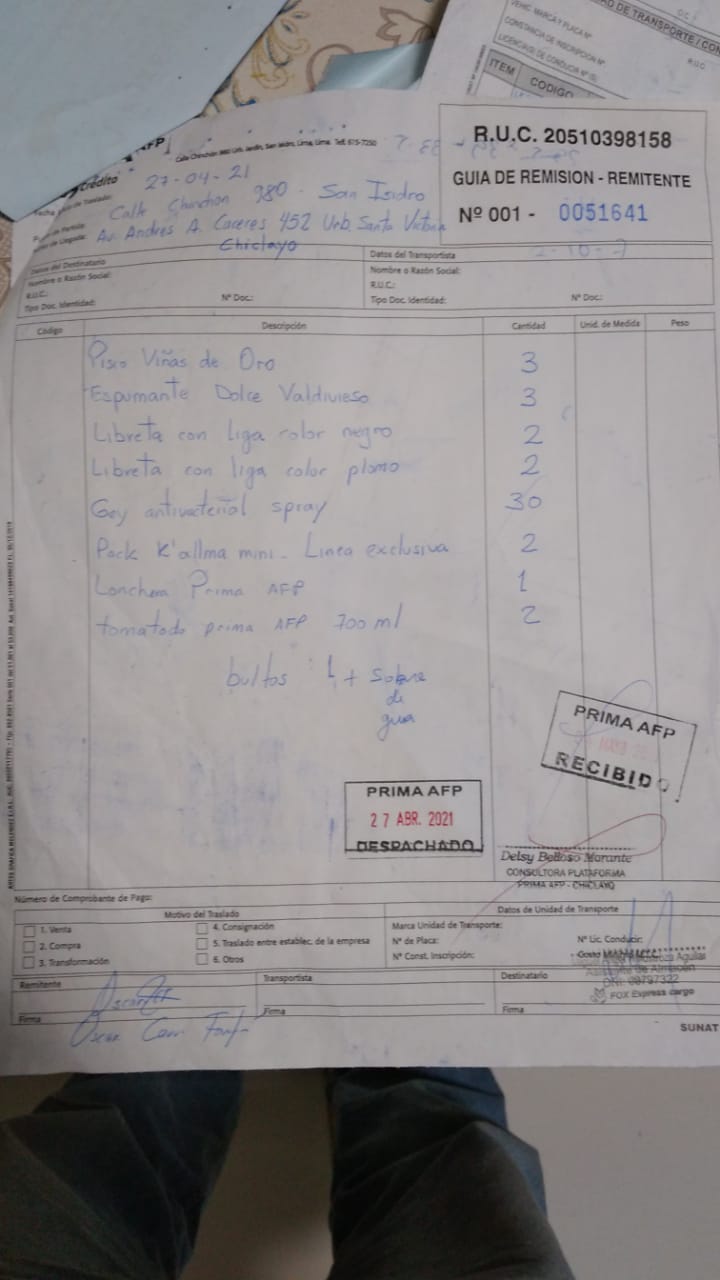 RO DE TRANSPORTE / CON
VEHIC. MARCA Y PLACA Nº
CONSTANCIA DE INSCRIPCION Nº
LICENCIA(S) DE CONDUCIR Nº (S)
R.U.C.
ITEM CODIGO
AFP
Calle Chinchón 980 Urb. Jardín, San Isidro, Lima, Lima. Telf. 615-7250
Crédito
R.U.C. 20510398158
GUIA DE REMISION - REMITENTE
Nº 001 - 0051641
27-04-21
Calle Chinchon 980 - San Isidro
Av. Andrés A. Caceres 452 Urb. Santa Victoria
Chiclayo
Datos del Destinatario
Datos del Transportista
Nombre o Razón Social:
Nombre o Razón Social:
R.U.C.:
R.U.C.:
Tipo Doc. Identidad: Nº Doc.:
Tipo Doc. Identidad: Nº Doc.:
Código Descripción Cantidad Unid. de Medida Peso
Pisco Viñas de Oro 3
Espumante Dolce Valdivieso 3
Libreta con liga color negro 2
Libreta con liga color plomo 2
antibacterial spray 30
Pack K'allma mini - Linea exclusiva 2
Lonchera Prima AFP 1
tomatodo prima AFP 700 ml 2
bultos : 1 + Sobre
de
guia
PRIMA AFP
RECIBIDO
PRIMA AFP
27 ABR. 2021
DESPACHADO
Delsy Belloso Morante
CONSULTORA PLATAFORMA
PRIMA AFP - CHICLAYO
Número de Comprobante de Pago:
Motivo del Traslado
Datos de Unidad de Transporte
1. Venta
2. Compra
3. Transformación
4. Consignación
5. Traslado entre establec. de la empresa
6. Otros
Marca Unidad de Transporte:
Nº de Placa: Nº Lic. Conducir:
Nº Const. Inscripción:
Aguilar
Asistente de Almacén
DNI: 09797322
FOX Express cargo
Remitente Transportista Destinatario
Firma Firma Firma
Oscar
SUNAT